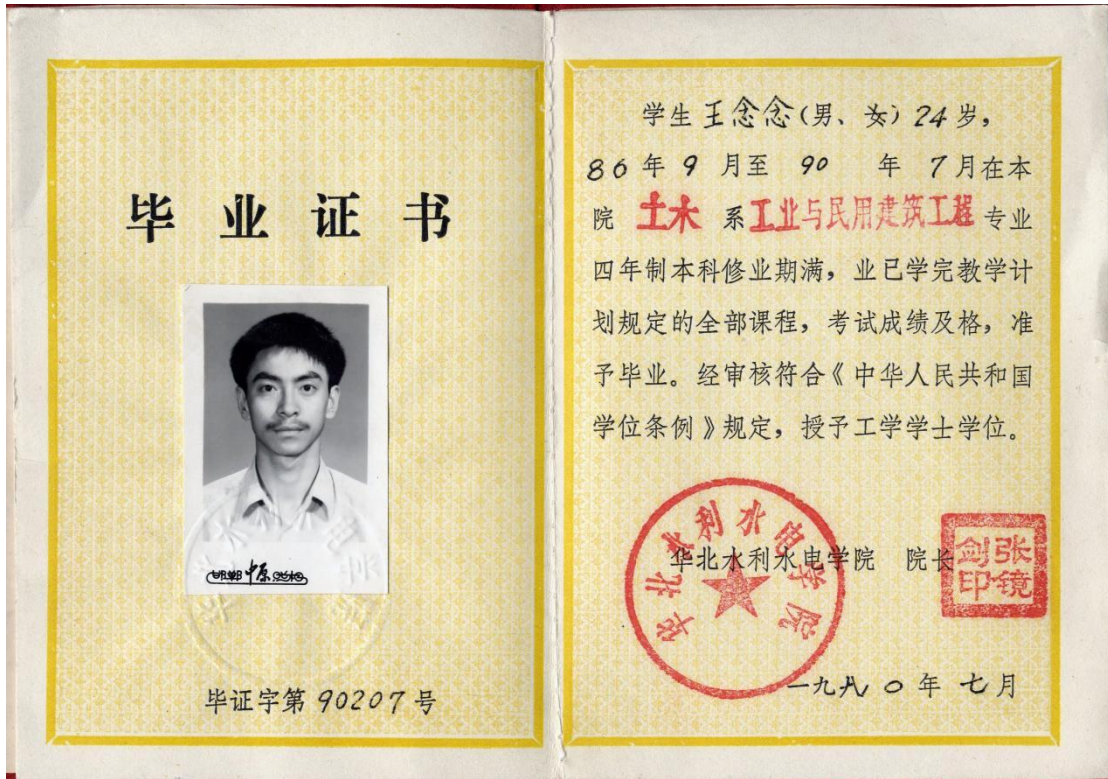 毕业证书
邯郸中原照相
毕证字第 90207 号
学生王念念(男、女)24岁,
86年9月至 90 年 7月在本
院 土木 系工业与民用建筑工程专业
四年制本科修业期满,业已学完教学计
划规定的全部课程,考试成绩及格,准
予毕业。经审核符合《中华人民共和国
学位条例》规定,授予工学学士学位。
华北水利水电学院
华北水利水电学院 院长
张镜剑印
一九九〇年七月